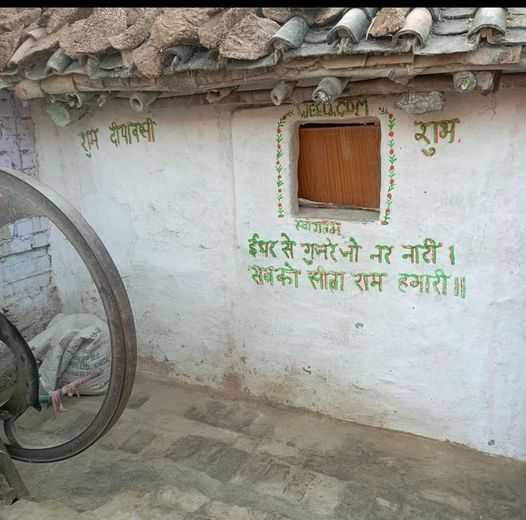 शुभ दीपावली
WELCOM
शुभ.
स्वागतम
ईधर से गुजरे जो नर नारी ।
सबको सीता राम हमारी ॥